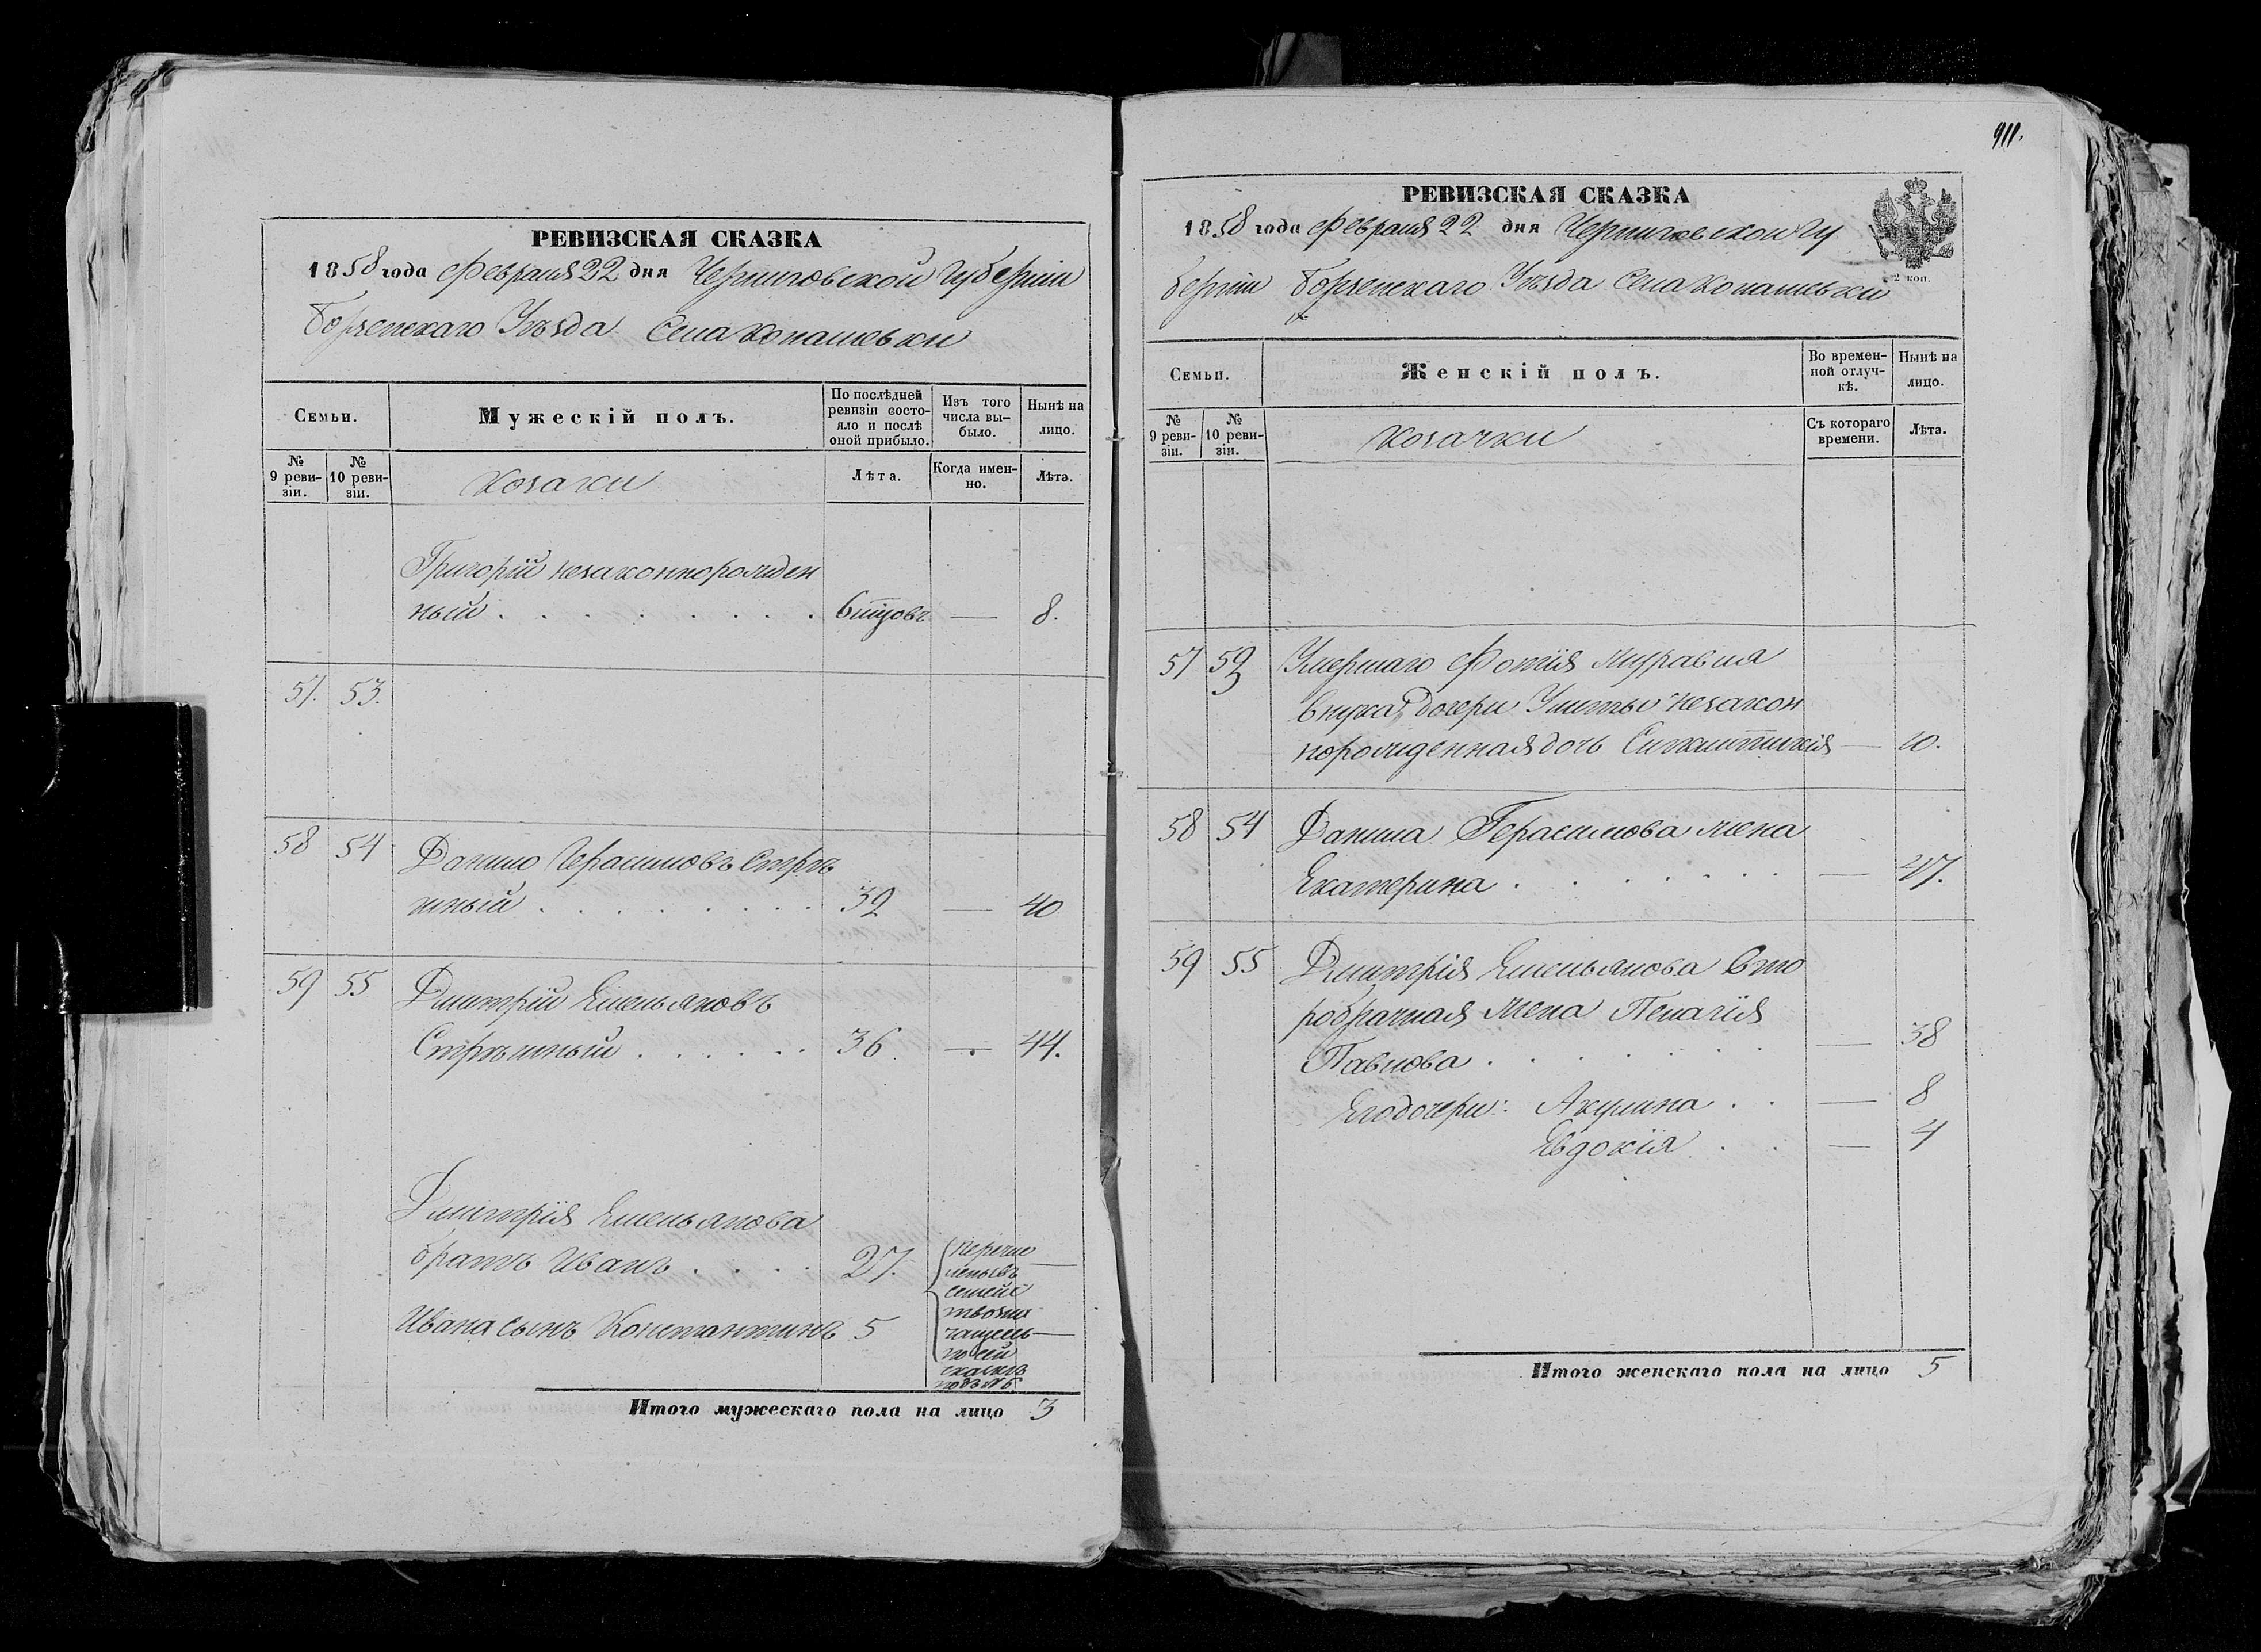 РЕВИЗСКАЯ СКАЗКА
1858 года Февраля 22 дня Черниговской Губерніи
Борзенскаго Уѣзда Села Копашевки
Семьи.
Мужескій полъ.
По послѣдней ревизіи состояло и послѣ оной прибыло.
Изъ того числа выбыло.
Нынѣ на лицо.
№ 9 ревизіи.
№ 10 ревизіи.
Козаки
Лѣта.
Когда именно.
Лѣта.
Григорій незаконнорожден
ный . . . . . . . . . — 8.
57. 53.
58 54 Данило Герасимовъ Стрѣ
шный . . . . . . . . 32 — 40
59 55 Дмитрій Емельяновъ
Стрѣшный . . . . . . 36 — 44.
Дмитрія Емельянова
братъ Иванъ . . . . 27.
Ивана сынъ Константинъ 5
перечи
семейс
по сей
сказкѣ
Итого мужескаго пола на лицо 3
911.
РЕВИЗСКАЯ СКАЗКА
1858 года Февраля 22 дня Черниговской Гу
берніи Борзенскаго Уѣзда Села Копашевки
2 коп.
Семьи.
Женскій полъ.
Во временной отлучкѣ.
Нынѣ на лицо.
№ 9 ревизіи.
№ 10 ревизіи.
Козачки
Съ котораго времени.
Лѣта.
57 53 Умершаго Фотія Муравля
внука, дочери Улиты незакон
норожденная дочь — 10.
58 54 Данила Герасимова жена
Екатерина . . . . . . . — 47.
59 55 Дмитрія Емельянова вто
робрачная жена Пелагія
Павлова . . . . . . . — 38
Его дочери: Акулина . . — 8
Евдокія . . — 4
Итого женскаго пола на лицо 5